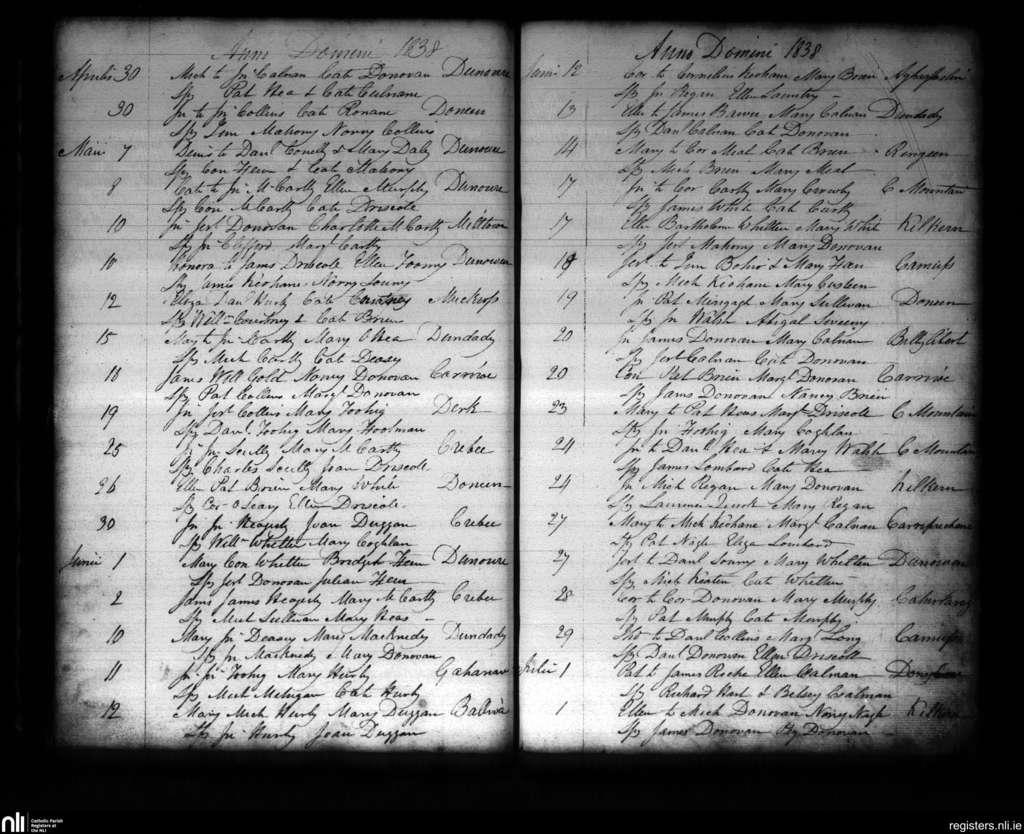 Anno Domini 1838
Aprilis 30 Mich to Jn Calnan Cate Donovan Dunowre
Sps Pat Hea & Cate Culnane
30 Jn to Jn Collins Cat Ronane Doneen
Sps Tim Mahony Norry Collins
Maii 7 Denis to Danl & Mary Daly Dunowre
Sps Con & Cate Mahony
8 Cate to Jn McCarthy Ellen Murphy Dunowre
Sps Con McCarthy Cate Driscole
10 Jn Jert Donovan Charlotte McCarthy Milltown
Sps Jn Clifford Margt Carthy
10 Honora to James Driscole Ellen Toomy Dunowen
Sps James Keohane Norry
12 Eliza Danl Hurly Cate Courtney Muckross
Sps Willm Courtney & Cate Brien
15 Mary to Jn Carthy Mary OHea Dundady
Sps Mich Carthy Cat Deasey
18 James Will Gold Nancy Donovan Carrowe
Sps Pat Collins Margt Donovan
19 Jn Jert Collins Mary Toohig Derk
Sps Danl Toohig Mary
25 Jn Jn Scully Mary McCarthy Crebee
Sps Charles Scully Joan Driscole
26 Ellen Pat Brien Mary White Doneen
Sps Cor O Leary Ellen Driscole
30 Jn Jn Hegarty Joan Duggan Crebee
Sps Willm Whelton Mary Coghlan
Junii 1 Mary Con Whelton Bridget Dunowre
Sps Jert Donovan Julian
2 James James Hegarty Mary McCarthy Crebee
Sps Mich Sullivan Mary Heas
10 Mary Jn Deasey Mary Macknedy Dundady
Sps Jn Macknedy Mary Donovan
11 Jn Jn Toohig Mary Hurly
Sps Mich Mehigan Cate Hurly
12 Mary Mich Hurly Mary Duggan
Sps Jn Hurly Joan Duggan
Anno Domini 1838
Junii 12 Cor to Cornelius Keohane Mary Brien
Sps Jn Regan Ellen
13 Ellen to James Mary Calnan Dundady
Sps Danl Calnan Cat Donovan
14 Mary to Cor Cat Brien Ringeen
Sps Mich Brien Mary
17 Jn to Cor Carthy Mary Crowly C Mountain
Sps James White Cate Carthy
17 Ellen Bartholomew Whelton Mary White Kilkern
Sps Jert Mahony Mary Donovan
18 Jert to Tim & Mary Camuss
Sps Mich Keohane Mary
19 Jn Pat Mary Sullivan Doneen
Sps Jn Walsh Abigal
20 Jn James Donovan Mary Calnan
Sps Jert Calnan Cate Donovan
20 Con Pat Brien Margt Donovan Carrive
Sps James Donovan Nancy Brien
23 Mary to Pat Heas Margt Driscole C Mountain
Sps Jn Toohig Mary Coghlan
24 Jn to Danl Hea & Mary Walsh C Mountain
Sps James Lombard Cate Hea
24 Jn Mich Regan Mary Donovan Kilkern
Sps Laurence Mary Regan
27 Mary to Mich Keohane Margt Calnan
Sps Pat Nagle Eliza Lombard
27 Jert to Danl Mary Whelton Dunowen
Sps Mich Cate Whelton
28 Cor to Cor Donovan Mary Murphy
Sps Pat Murphy Cate Murphy
29 Thos to Danl Collins Margt Long Camuss
Sps Danl Donovan Ellen Driscoll
Julii 1 Pat to James Roche Ellen Calnan
Sps Richard Hart & Betsey
1 Ellen to Mich Donovan Norry Nagle Kilkern
Sps James Donovan Donovan
nli
Catholic Parish
Registers at
the NLI
registers.nli.ie